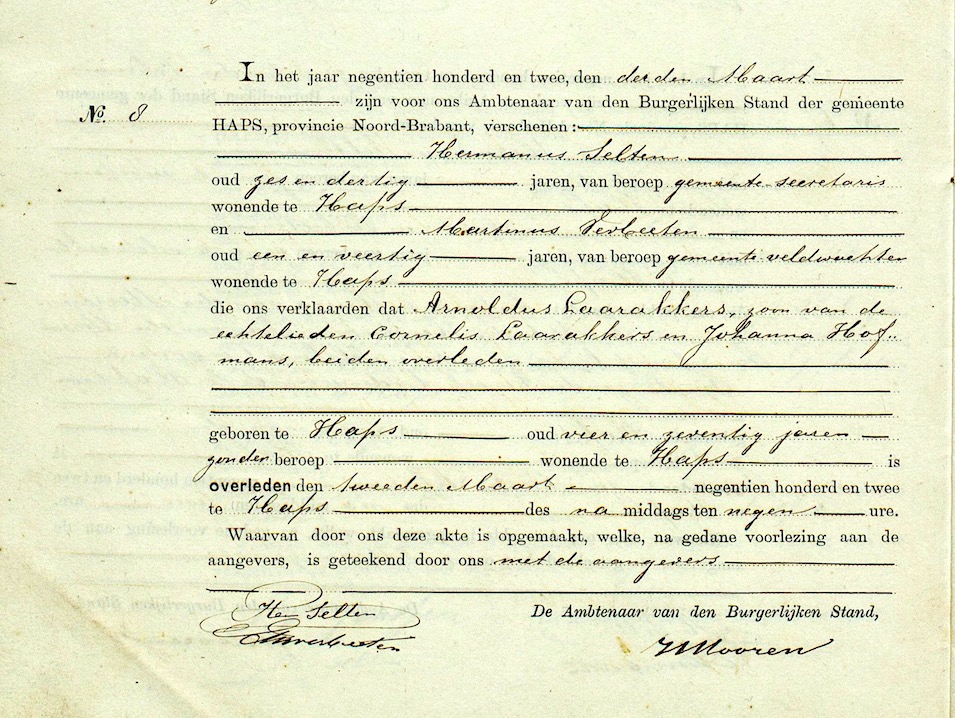 In het jaar negentien honderd en twee, den derden Maart
zijn voor ons Ambtenaar van den Burgerlijken Stand der gemeente
No. 8
HAPS, provincie Noord-Brabant, verschenen:
Hermanus Selten
oud zes en dertig jaren, van beroep gemeente secretaris
wonende te Haps
en Martinus Verbeeten
oud een en veertig jaren, van beroep gemeente veldwachter
wonende te Haps
die ons verklaarden dat Arnoldus Laarakkers, zoon van de
echtelieden Cornelis Laarakkers en Johanna Hof„
mans, beiden overleden
geboren te Haps oud vier en zeventig jaren
zonder beroep wonende te Haps is
overleden den tweeden Maart negentien honderd en twee
te Haps des na middags ten negen ure.
Waarvan door ons deze akte is opgemaakt, welke, na gedane voorlezing aan de
aangevers, is geteekend door ons met de aangevers
Hs Selten
De Ambtenaar van den Burgerlijken Stand,
MVerbeeten
Mooren